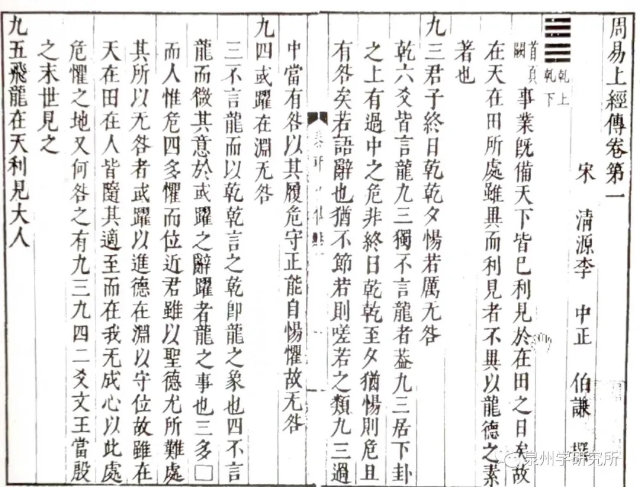 周易上經傳卷第一
宋 清源李 中正 伯謙 撰
乾上
乾下
首頁闕 事業既備天下皆已利見於在田之日矣故
在天在田所處雖異而利見者不異以龍德之素
著也
九三君子終日乾乾夕惕若厲无咎
乾六爻皆言龍九三獨不言龍者葢九三居下卦
之上有過中之危非終日乾乾至夕猶惕則危且
有咎矣若語辭也猶不節若則嗟若之類九三過
中當有咎以其履危守正能自惕懼故无咎
九四或躍在淵无咎
三不言龍而以乾乾言之乾即龍之象也四不言
龍而微其意於或躍之辭躍者龍之事也三多□
而人惟危四多懼而位近君雖以聖德尤所難處
其所以无咎者或躍以進德在淵以守位故雖在
天在田在人皆隨其適至而在我无成心以此處
危懼之地又何咎之有九三九四二爻文王當殷
之末世見之
九五飛龍在天利見大人
泉州学研究所